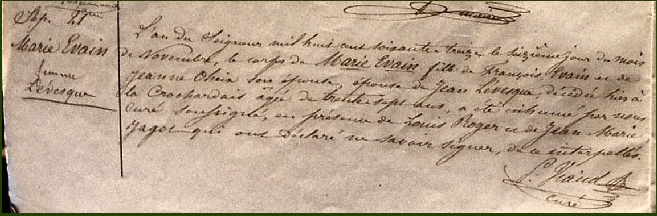 Sep. 27
Marie Evain
femme
Levesque
L'an du Seigneur mil huit cent soixante treize le seizième jour du mois
de Novembre, le corps de Marie Evain fille de François Evain et de
Jeanne son épouse, épouse de Jean Levesque, décédé hier à
la Crochardais âgé de trente sept ans, a été inhumé par nous
curé soussigné, en présence de Louis Roger et de Jean Marie
Jagot qui ont déclaré ne savoir signer, de ce interpellés.
Curé